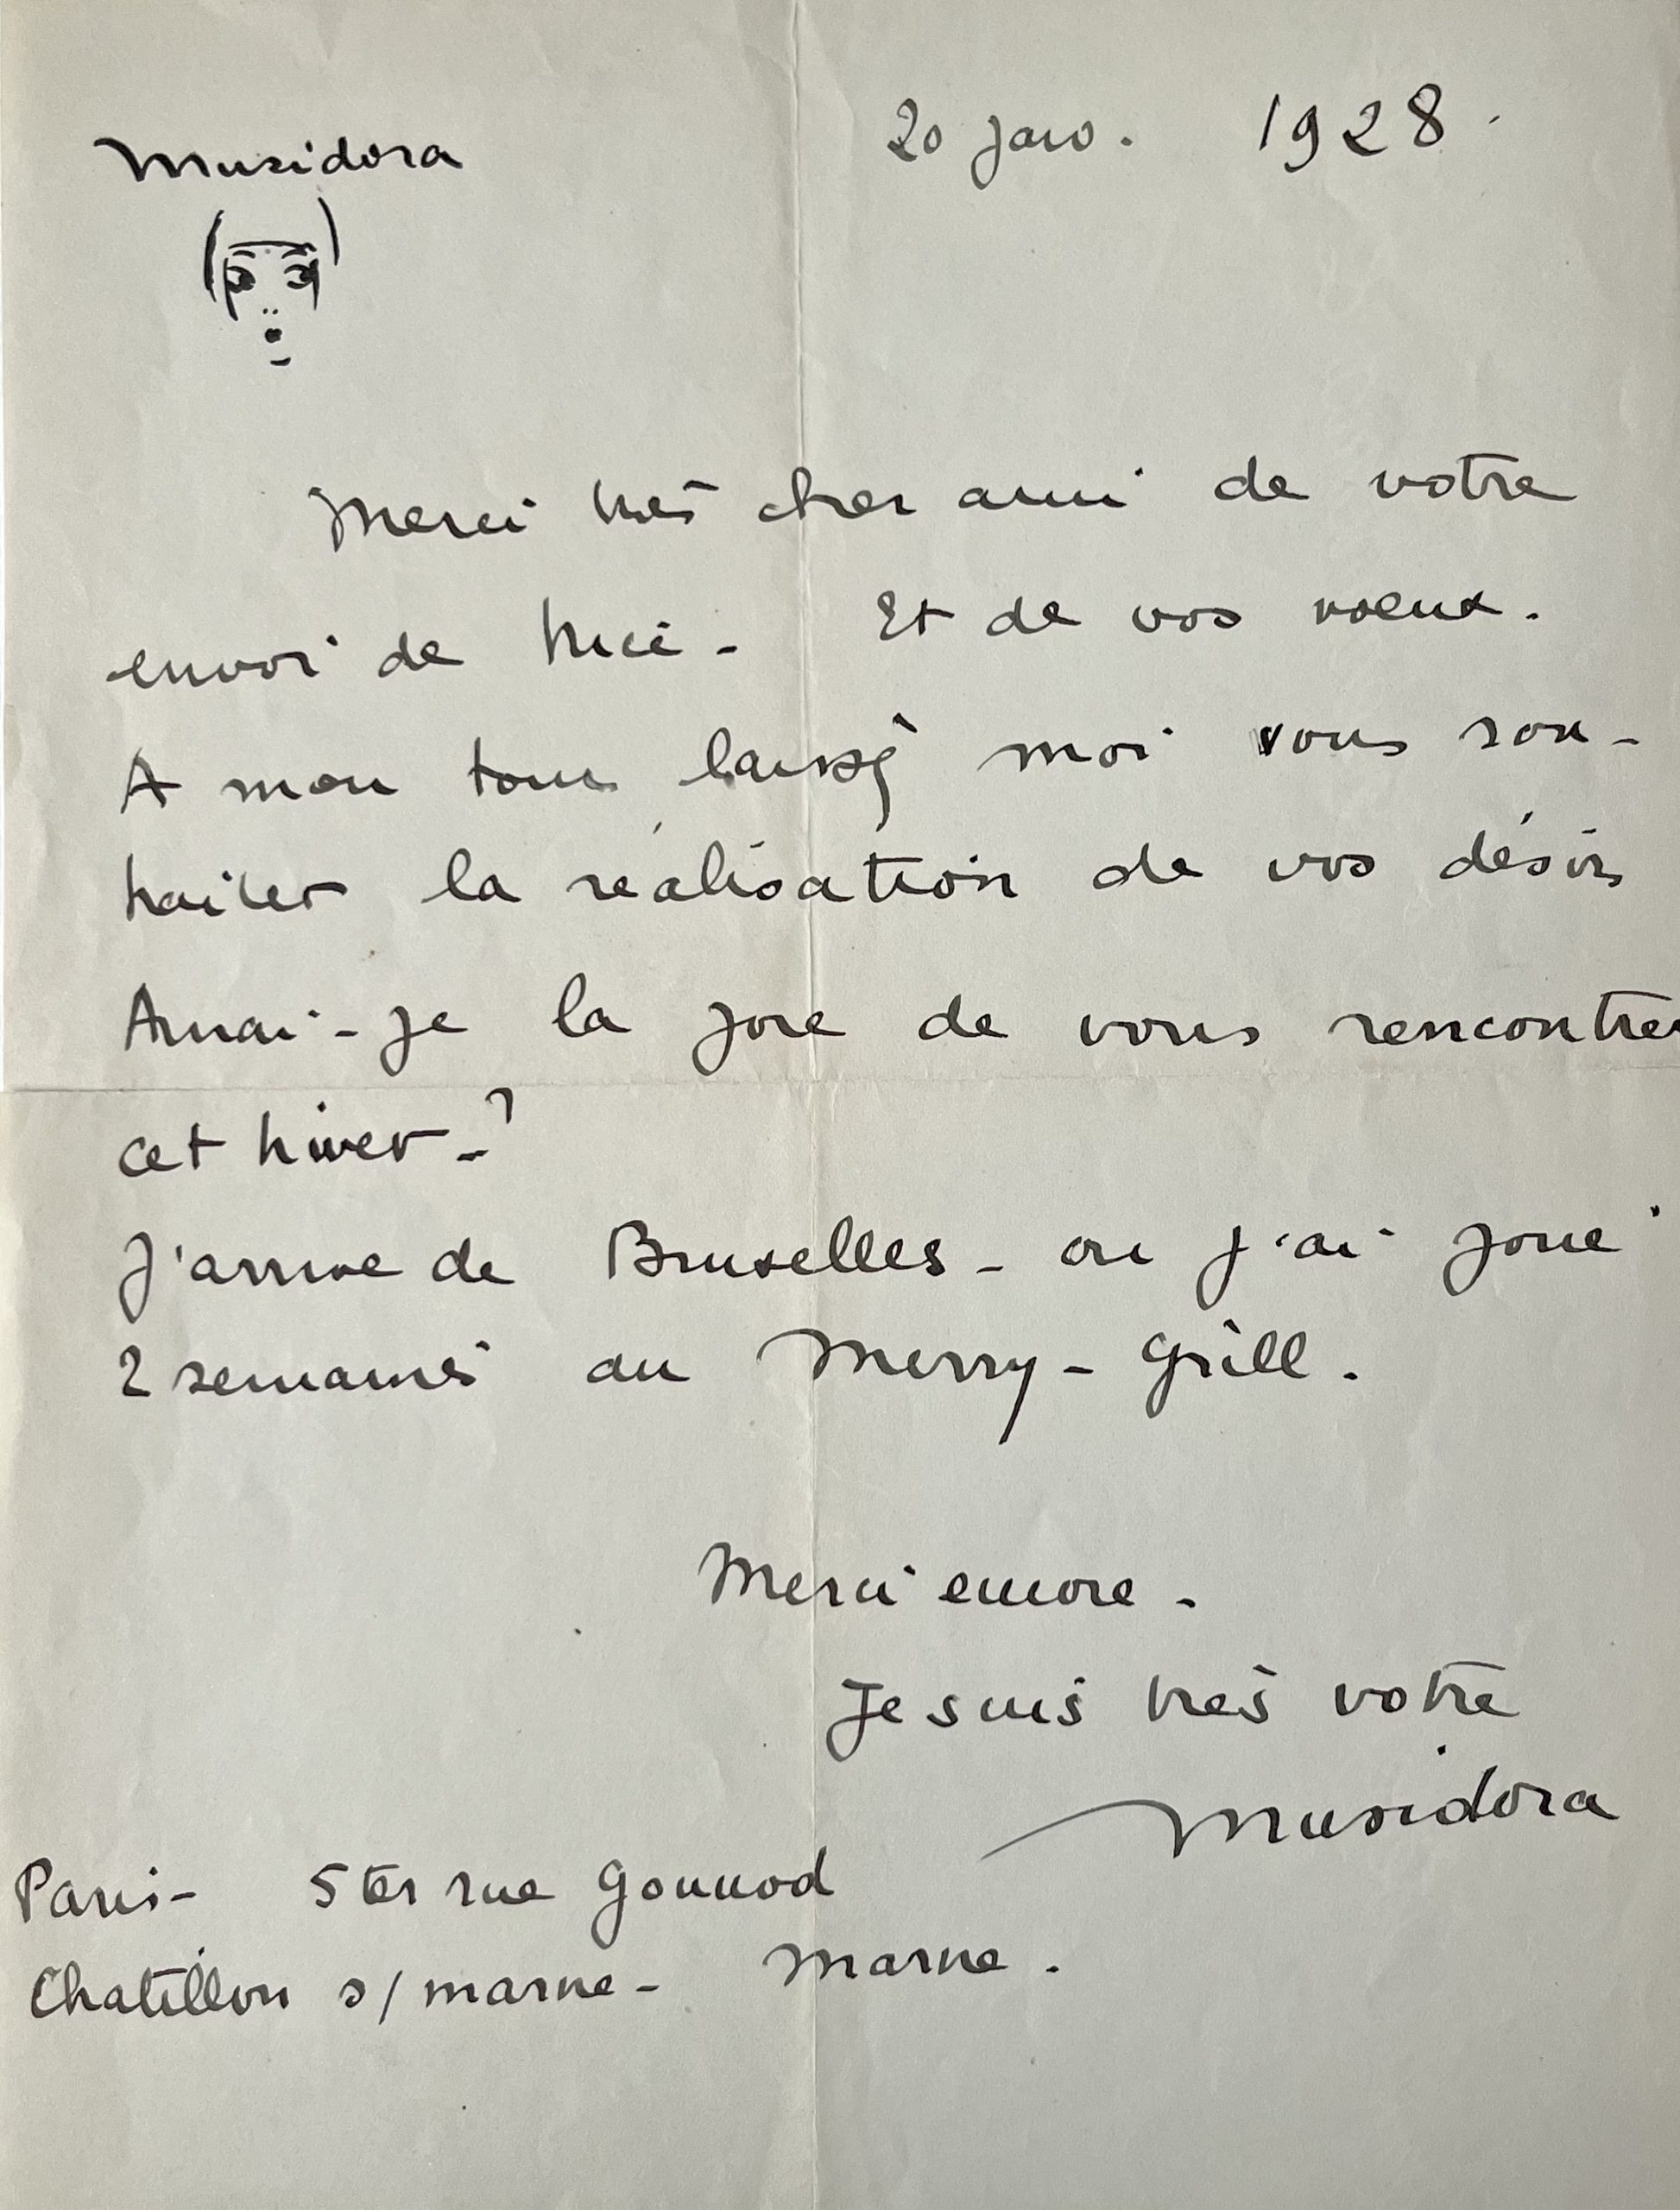 Musidora
20 janv. 1928.
Merci très cher ami de votre
envoi de Nice - Et de vos voeux.
A mon tour laissez moi vous sou-
haiter la réalisation de vos désirs
Aurai-je la joie de vous rencontrer
cet hiver - ?
J'arrive de Bruxelles - ou j'ai joué
2 semaines au Merry - Grill.
Merci encore -
Je suis très votre
Musidora
Paris - 5 ter rue Gounod
Chatillon s/ marne - Marne.